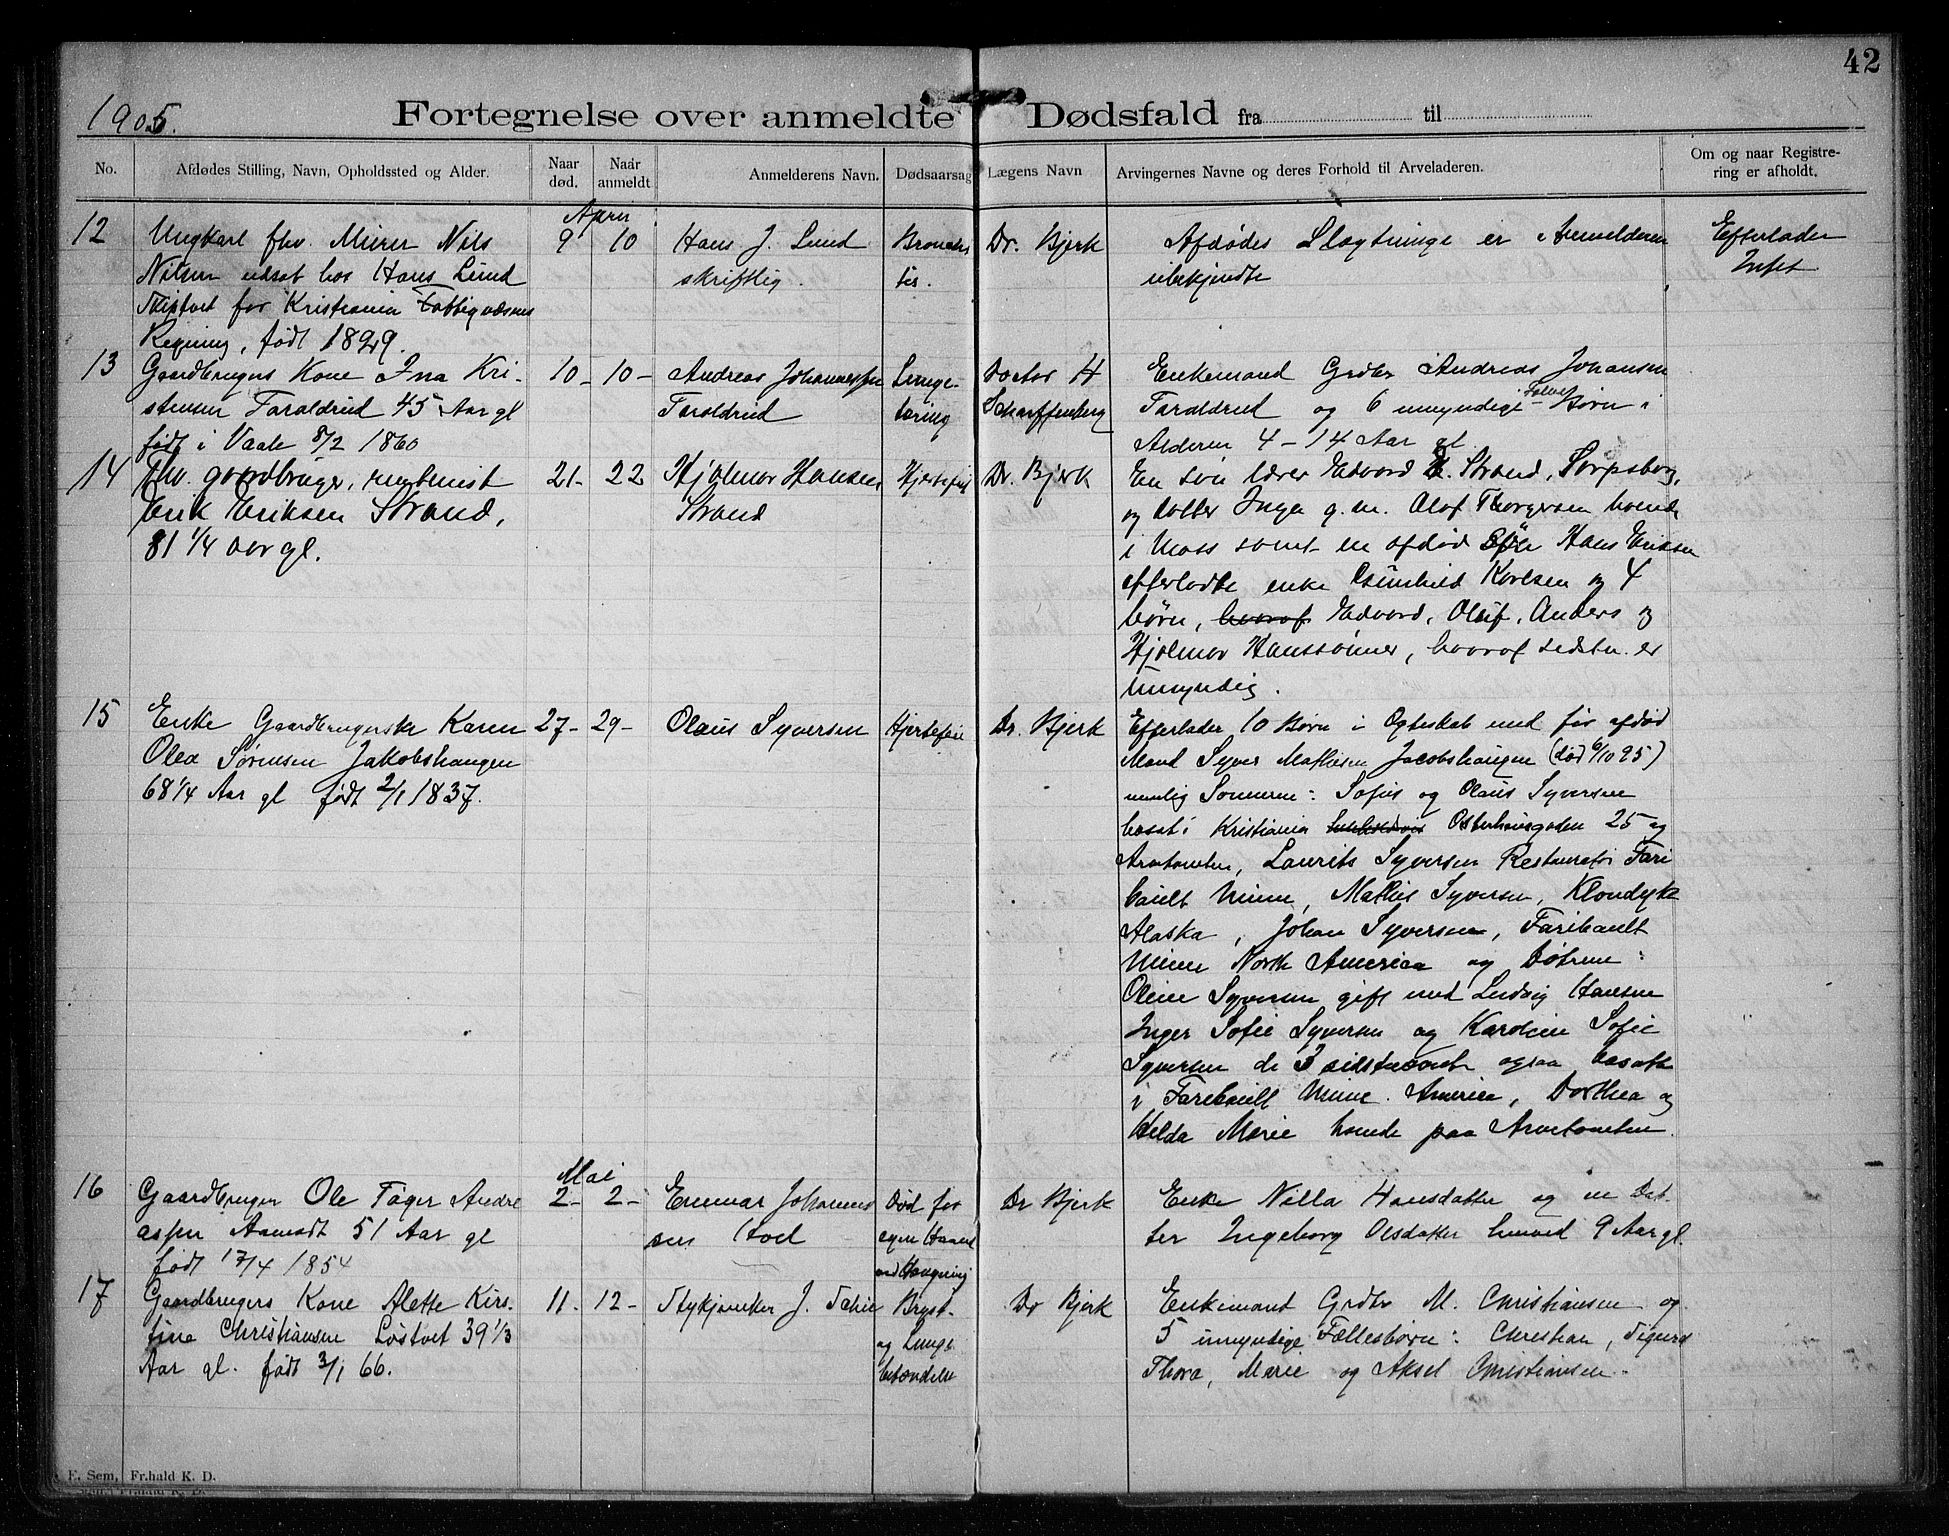 42
1905.
Fortegnelse over anmeldte Dødsfald fra til
No.
Afdødes Stilling, Navn, Opholdssted og Alder.
Naar død.
Naar anmeldt
Anmelderens Navn.
Dødsaarsag
Lægens Navn
Arvingernes Navne og deres Forhold til Arveladeren.
Om og naar Registrering er afholdt.
April
12
Ungkarl fhv. Murer Nils
Nilsen udsat hos Hans Lund
for Kristiania Fattigvæsens
Regning, født 1829.
9 10
Hans J. Lund
skriftlig.
Dr. Bjerk
Afdødes Slægtninge er Anmelderen
ubekjendte
Efterlader
Intet
13
Gaardbrugers Kone Ina Kri-
stensen Taraldrud 45 Aar gl
født i Vaale 8/2 1860
10- 10-
Andreas Johannessen
Taraldrud
Lunge-
tæring
Doctor H
Scharffenberg
Enkemand Grdbr Andreas Johansen
Taraldrud og 6 umyndige Børn i
Alderen 4-14 Aar gl
14
Fhv. gaardbruger,
Erik Eriksen Strand,
81 1/4 aar gl.
21- 22
Hjalmar Hansen
Strand
Hjertefeil
Dr. Bjerk
En søn lærer Edvard E. Strand, Sarpsborg,
og datter Inga g.m. Olaf Thorgersen boende
i Moss samt en afdød søn Hans Eriksen
efterladte enke Karlsen og 4
børn, hvoraf Edvard, Oluf, Anders og
Hjalmar Hanssønner, hvoraf sidstn. er
umyndig.
15
Enke Gaardbrugerske Karen
Olea Sørensen Jakobshaugen
68 1/4 Aar gl født 2/1 1837.
27- 29-
Olaus Syversen
Hjertefeil
Dr. Bjerk
Efterlader 10 Børn i Ægteskab med før afdød
Mand Syver Mathisen Jacobshaugen (død 6/10 95)
nemlig Sønnerne: Sofus og Olaus Syversen
bosat i Kristiania Osterhausgaden 25 og
Arvetomten, Laurits Syversen Restauratør Fari
bault Minn, Mathis Syversen, Klondyke
Alaska, Johan Syversen, Faribault
Minn North America og Døtrene:
Oline Syversen gift med Ludvig Hansen
Inger Sofie Syversen og Karoline Sofie
Syversen de 3 sidstnævnte ogsaa bosatte
i Faribault Minn. America, Dorthea og
Hilda Marie boende paa Arvetomten.
Mai
16
Gaardbruger Ole Tøger Andre
assen Aamodt 51 Aar gl
født 17/4 1854
2- 2-
Gunnar Johannes
sen
Død for
egen Haand
ved Hængning
Dr Bjerk
Enke Nilla Hansdatter og en Dat-
ter Ingeborg Olsdatter henved 9 Aar gl.
17
Gaardbrugers Kone Alette Kirs-
tine Christiansen Løstvet 39 1/3
Aar gl. født 3/1 66.
11- 12-
Stykjunker J.
Bryst-
og Lunge
betændelse
Dr Bjerk
Enkemand Grdbr M. Christiansen og
5 umyndige Fællesbørn: Christian, Sigurd
Thora, Marie og Aksel Christiansen.
F. Sem, Fr.hald K. D.